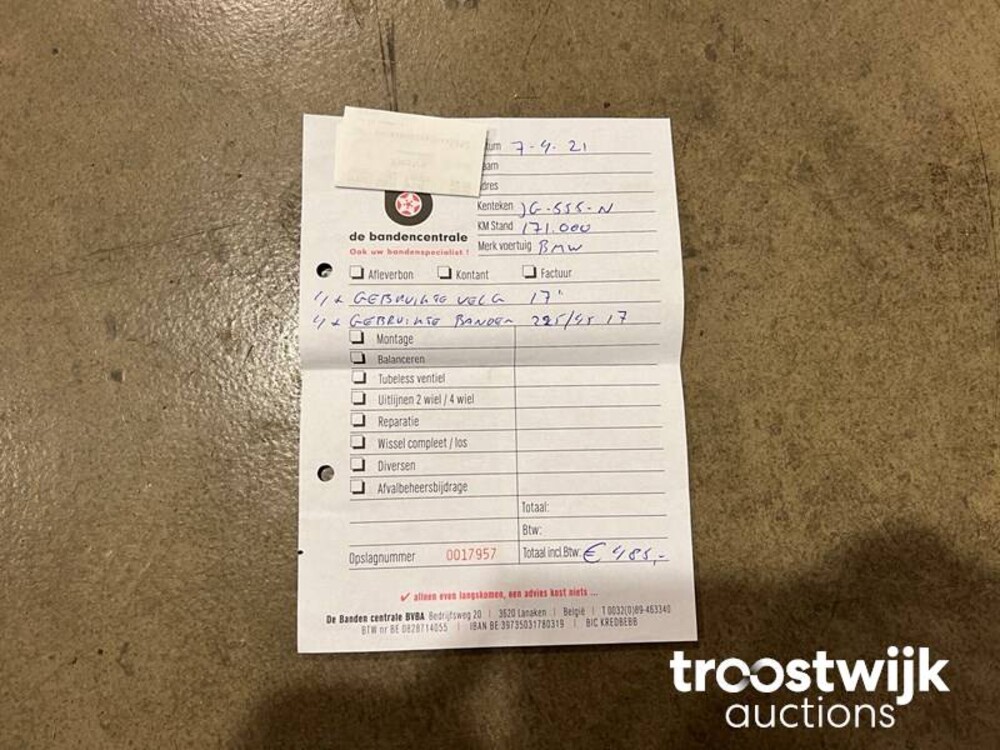 tum 7-4-21
aam
dres
Kenteken JG-555-N
KM Stand 171.000
Merk voertuig BMW
de bandencentrale
Ook uw bandenspecialist !
Afleverbon Kontant Factuur
4x GEBRUIKTE VELG 17"
4x GEBRUIKTE BANDEN 225/45 17
Montage
Balanceren
Tubeless ventiel
Uitlijnen 2 wiel / 4 wiel
Reparatie
Wissel compleet / los
Diversen
Afvalbeheersbijdrage
Totaal:
Btw:
Opslagnummer 0017957 Totaal incl.Btw: € 485,-
✓ alleen even langskomen, een advies kost niets ...
De Banden centrale BVBA Bedrijfsweg 20 | 3620 Lanaken | België | T 0032(0)89-463340
BTW nr BE 0828714055 | IBAN BE 39735031780319 | BIC KREDBEBB
troostwijk
auctions